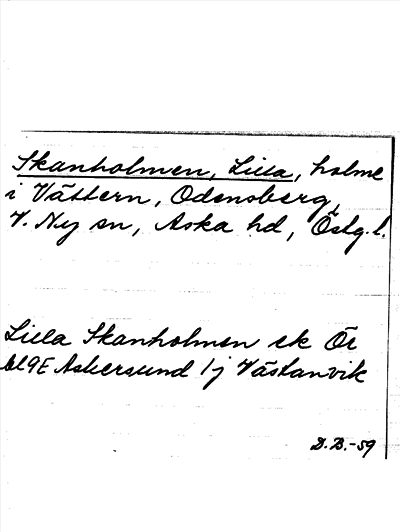 Skanholmen, Lilla, holme
i Vättern, Odensberg,
V. Ny sn, Aska hd, Östg. l.
Lilla Skanholmen ek Ör
bl 9E Askersund 1j Västanvik
D.B.-59